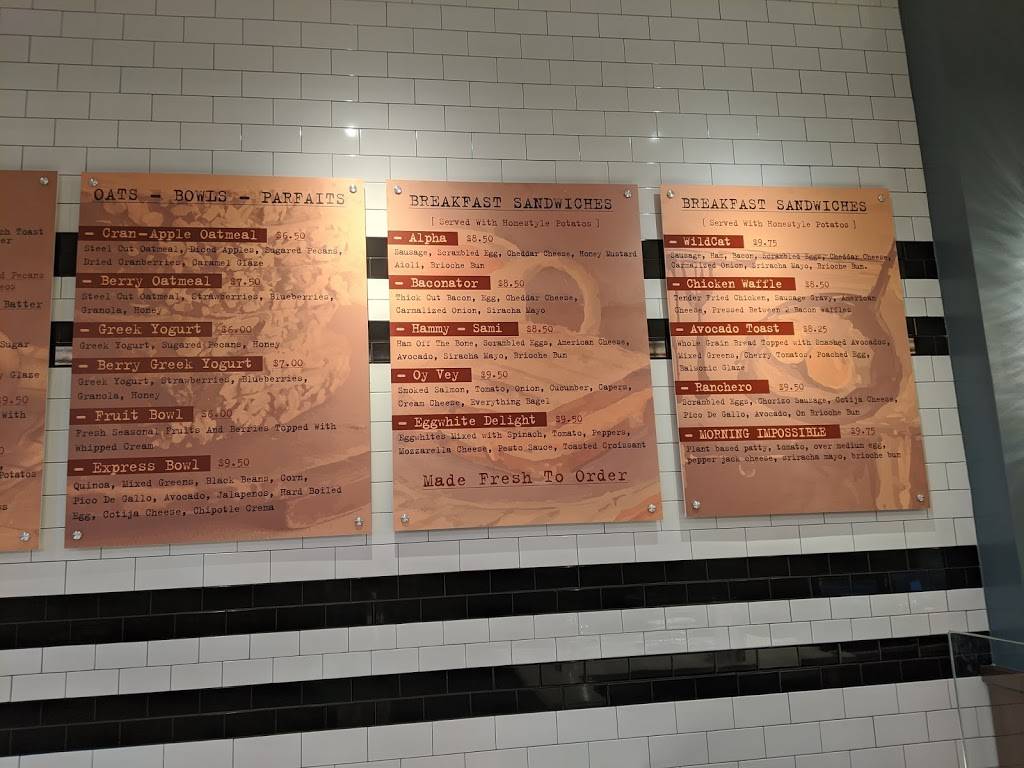 ch Toast
Pecans
Batter
Sugar
y Glaze
9.50
With
Potatos
OATS - BOWLS - PARFAITS
- Cran-Apple Oatmeal $6.50
Steel Cut Oatmeal, Diced Apples, Sugared Pecans,
Dried Cranberries, Caramel Glaze
- Berry Oatmeal $7.50
Steel Cut Oatmeal, Strawberries, Blueberries,
Granola, Honey
- Greek Yogurt $6.00
Greek Yogurt, Sugared Pecans, Honey
- Berry Greek Yogurt $7.00
Greek Yogurt, Strawberries, Blueberries,
Granola, Honey
- Fruit Bowl $6.00
Fresh Seasonal Fruits And Berries Topped With
Whipped Cream
- Express Bowl $9.50
Quinoa, Mixed Greens, Black Beans, Corn,
Pico De Gallo, Avocado, Jalapenos, Hard Boiled
Egg, Cotija Cheese, Chipotle Crema
BREAKFAST SANDWICHES
[ Served With Homestyle Potatos ]
- Alpha $8.50
Sausage, Scrambled Egg, Cheddar Cheese, Honey Mustard
Aioli, Brioche Bun
- Baconator $8.50
Thick Cut Bacon, Egg, Cheddar Cheese,
Carmalized Onion, Siracha Mayo
- Hammy - Sami $8.50
Ham Off The Bone, Scrambled Eggs, American Cheese,
Avocado, Siracha Mayo, Brioche Bun
- Oy Vey $9.50
Smoked Salmon, Tomato, Onion, Cucumber, Capers,
Cream Cheese, Everything Bagel
- Eggwhite Delight $9.50
Eggwhites Mixed with Spinach, Tomato, Peppers,
Mozzarella Cheese, Pesto Sauce, Toasted Croissant
Made Fresh To Order
BREAKFAST SANDWICHES
[ Served With Homestyle Potatos ]
- WildCat $9.75
Sausage, Ham, Bacon, Scrambled Eggs, Cheddar Cheese,
Carmalized Onion, Sriracha Mayo, Brioche Bun.
- Chicken Waffle $8.50
Tender Fried Chicken, Sausage Gravy, American
Cheese, Pressed Between 2 Bacon Waffles
- Avocado Toast $8.25
Whole Grain Bread Topped with Smashed Avocados,
Mixed Greens, Cherry Tomatos, Poached Egg,
Balsomic Glaze
- Ranchero $9.50
Scrambled Eggs, Chorizo Sausage, Cotija Cheese,
Pico De Gallo, Avocado, On Brioche Bun
- MORNING IMPOSSIBLE $9.75
Plant based patty, tomato, over medium egg,
pepper jack cheese, sriracha mayo, brioche bun